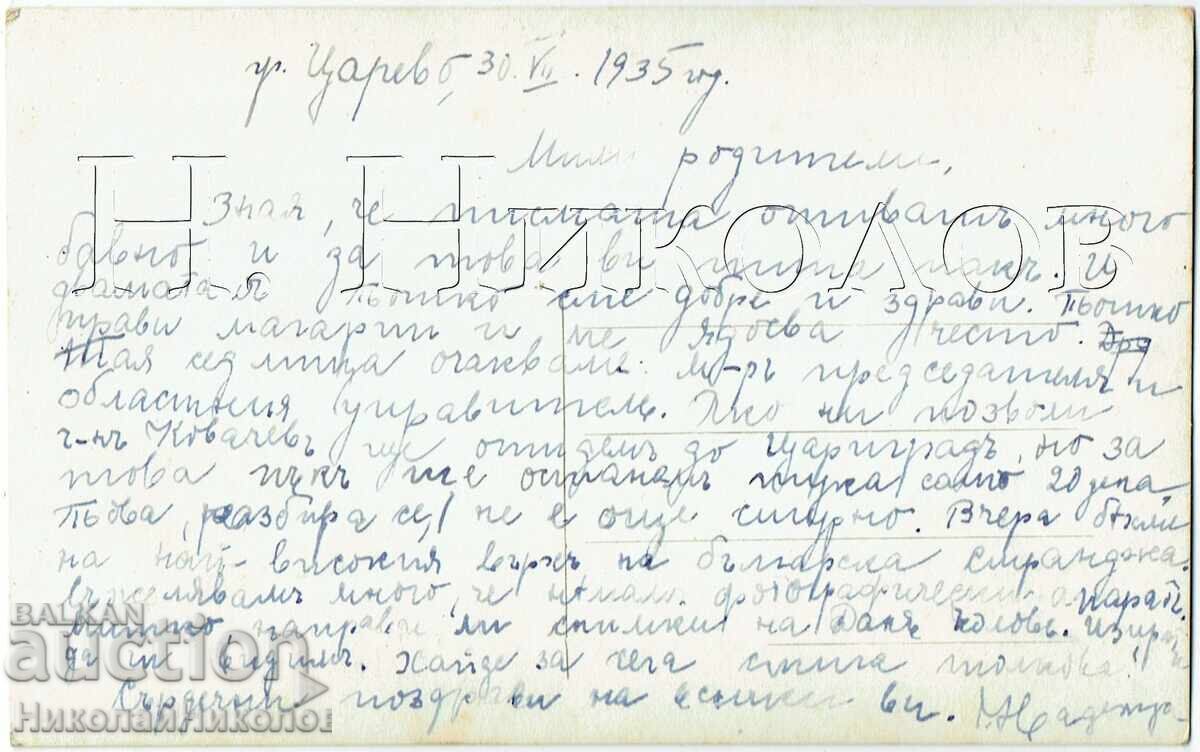 гр. Царево, 30.VII.1935 год.
Мили родители,
Зная, че писмата отиватъ много
бавно и за това ви пиша пакъ. И
двамата съ Пьошко сме добре и здрави. Пьошко
прави магарии и ме ядосва често.
Тая седмица очакваме м-ръ председателя и
областния управитель. Ако ни позволи
г-нъ Ковачевъ ще отидемъ до Цариградъ, но за
това пъкъ ще останемъ тука само 20 дена,
разбира се, не е още сигурно. Вчера бѣхме
на най-високия връхъ на българска Странджа.
Съжелявамъ много, че нѣмамъ фотографически апаратъ.
направи ли снимки на Данъ Коловъ.
да ги видимъ. Хайде за сега стига толкова!
Сърдечни поздрави на всички ви.
Н. НИКОЛОВ
BALKAN
auction
НиколайНиколов